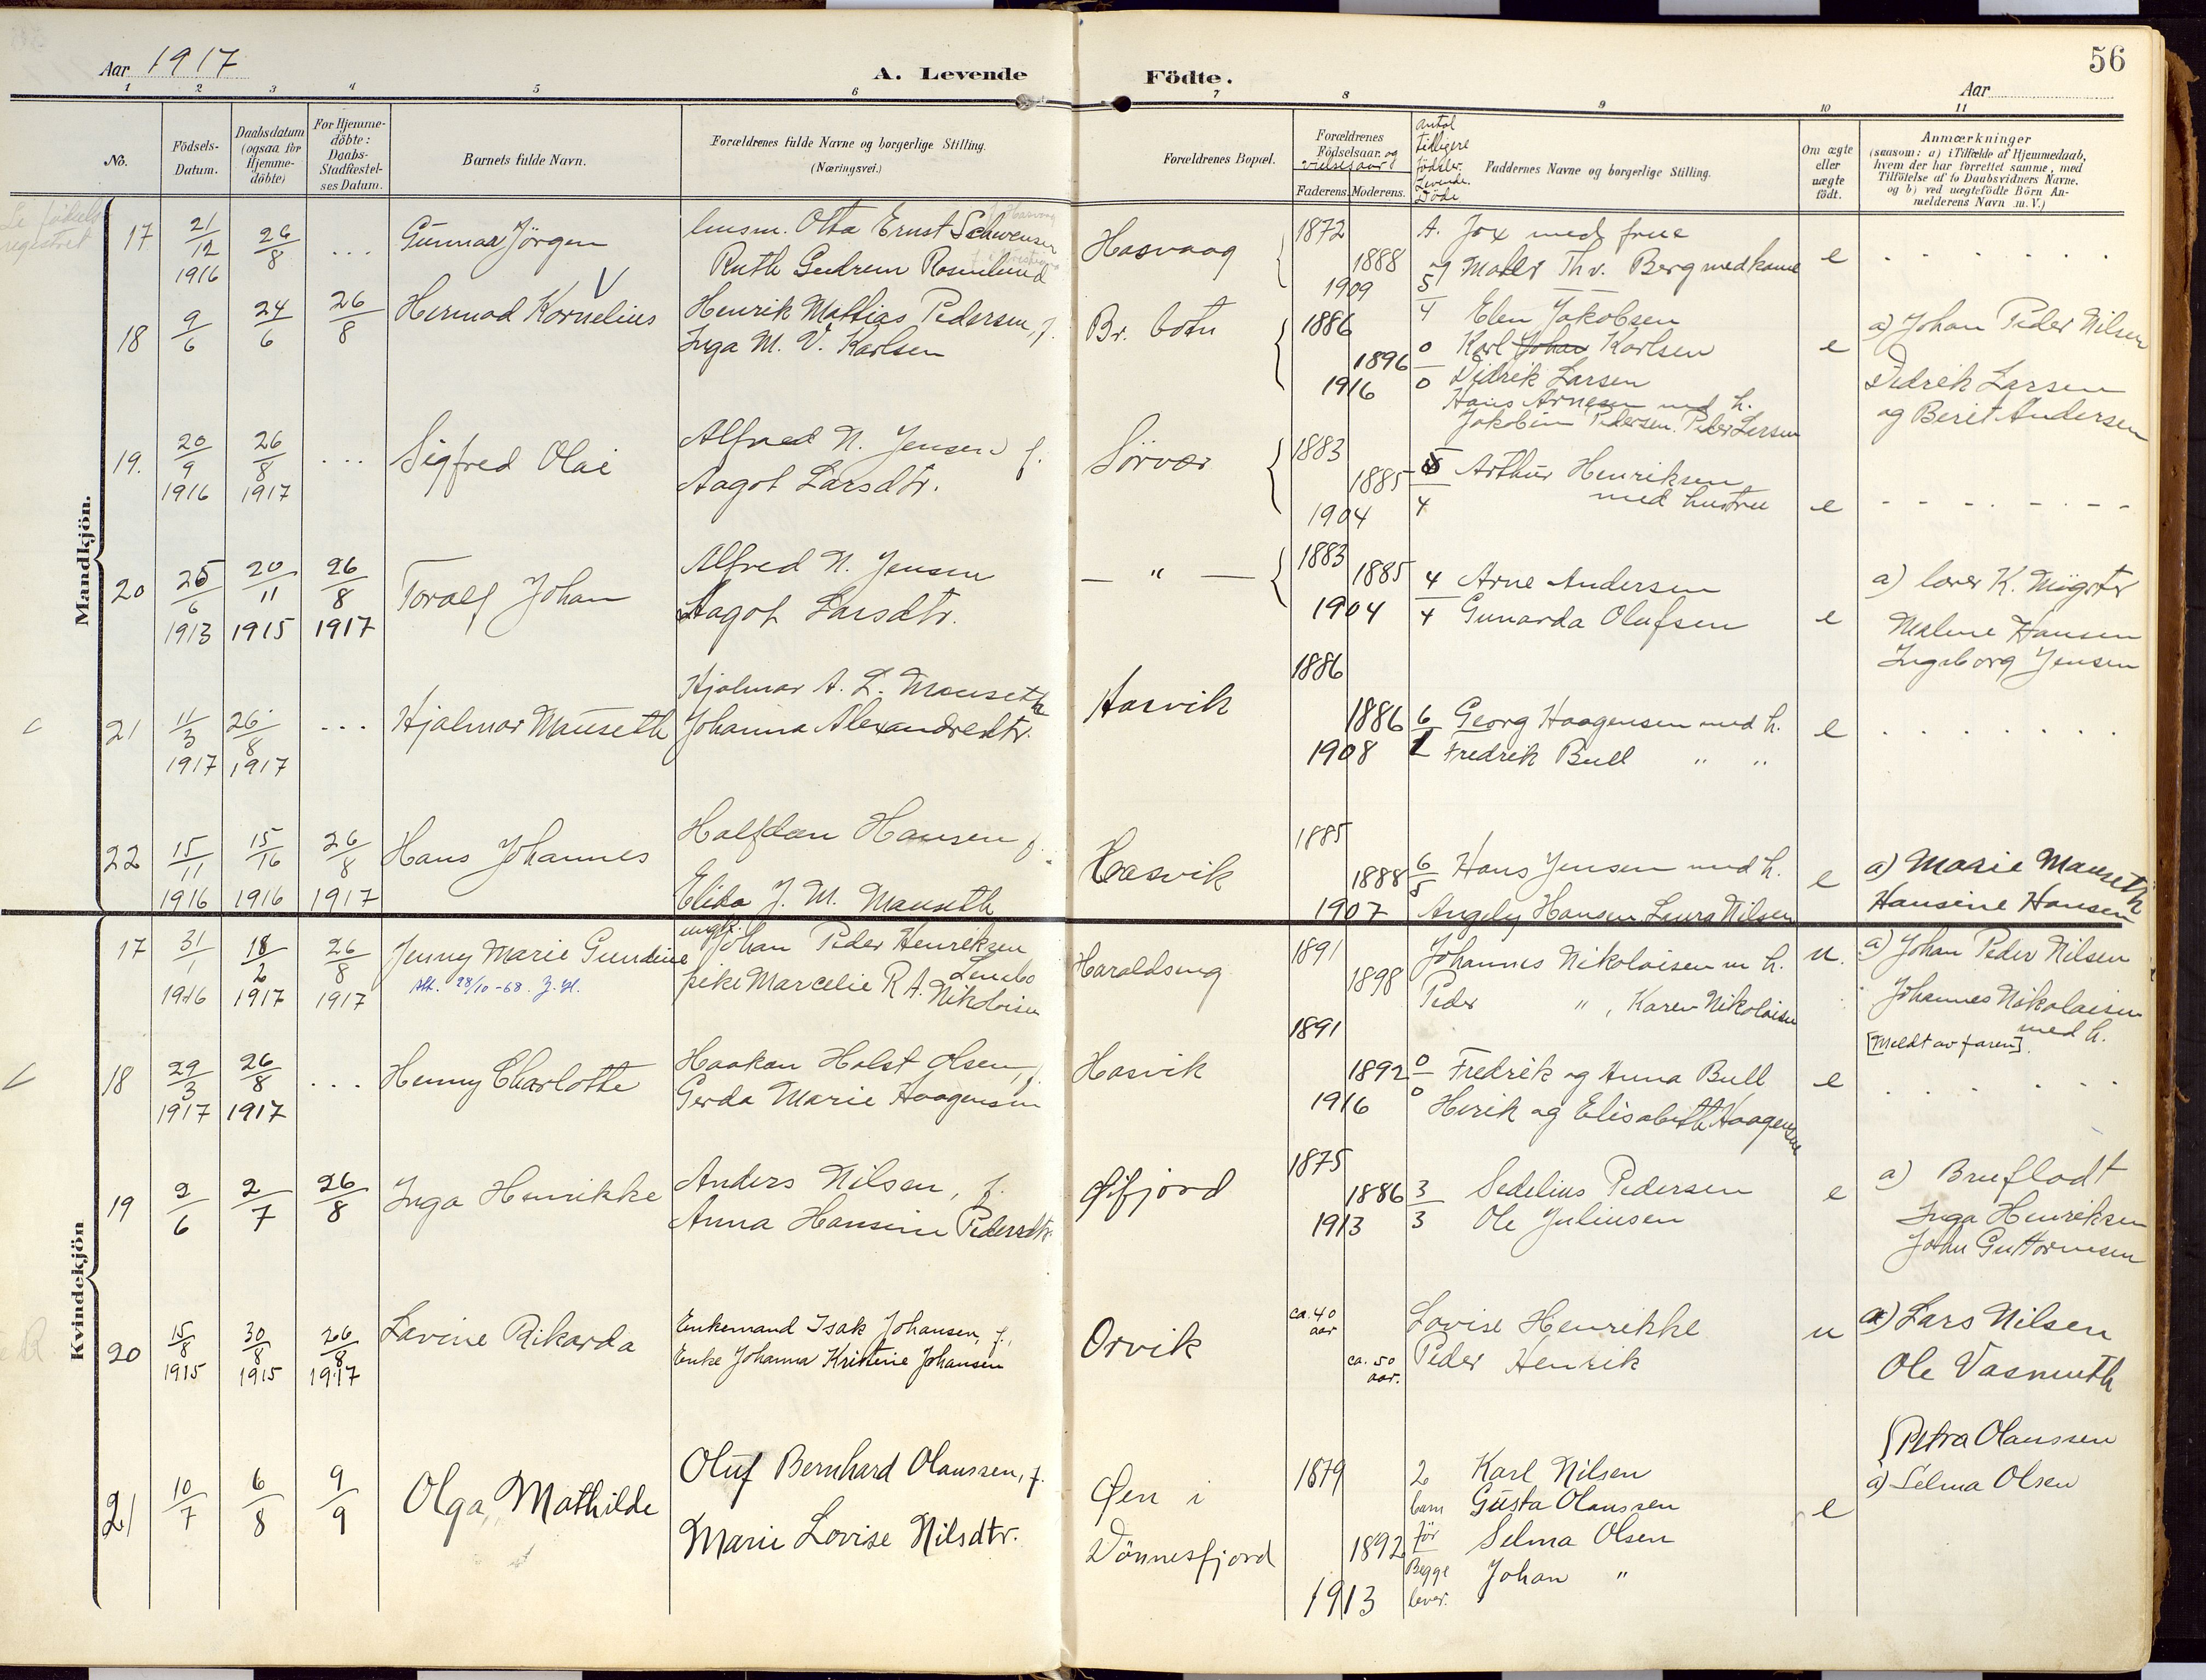 Aar 1917
A. Levende
Födte.
56
Aar
1 2 3 4 5 6 7 8 9 10 11
No.
Födsels-
Datum.
Daabsdatum
(ogsaa for
Hjemme-
döbte)
For Hjemme-
döbte:
Daabs-
Stadfæstel-
ses Datum.
Barnets fulde Navn.
Forældrenes fulde Navne og borgerlige Stilling.
(Næringsvei.)
Forældrenes Bopæl.
Forældrenes
Födselsaar. og
vielsesaar
Faderens. Moderens.
Antal
tidligere
fødsler.
Levende.
Døde
Faddernes Navne og borgerlige Stilling.
Om ægte
eller
uægte
födt.
Anmærkninger
(saasom: a) i Tilfælde af Hjemmedaab,
hvem der har forrettet samme, med
Tilföielse af to Daabsvidners Navne.
og b) ved uægtefödte Börn An-
melderens Navn m. V.)
Mandkjön.
17 21/12 1916 26/8 ... Gunnar Jörgen
lensm. Otto Ernst Schwenser
Ruth Gudrun Rosenlund
Hasvaag
1872 1888 1909
A. Jox med frue
og Maler Thv. Berg med kone
e
18 9/6 24/6 26/8 Hermod Kornelius
Henrik Mathias Pedersen, f.
Inga M. V. Karlsen
Br. botn
1886 1896 1916
0/0
Elen Jakobsen
Karl Johan Karlsen
Didrik Larsen
Hans Arnesen med h.
Jakobine Pedersen. Peder Larsen
e
a) Johan Peder Nilsen
Didrik Larsen
og Berit Andersen
19. 20/9 1916 26/8 1917 ... Sigfred Olai
Alfred N. Jensen f.
Aagot Larsdtr.
Sörvær
1883 1885 1904
5/4
Arthur Henriksen
med hustru
e
20 25/6 1913 20/11 1915 26/8 1917 Toralf Johan
Alfred N. Jensen
Aagot Larsdtr.
— " —
1883 1885 1904
4/4
Arne Andersen
Gunarda Olufsen
e
a) lærer K.
Malene Hansen
Ingeborg Jensen
21 11/3 1917 26/8 1917 ... Hjalmar Mauseth
Hjalmar A. L. Mauseth
Johanna Alexandredtr.
Hasvik
1886 1886 1908
6/1
Georg Haagensen med h.
Fredrik Bull " "
e
22 15/11 1916 15/16 1916 26/8 1917 Hans Johannes
Halfdan Hansen f.
Elida J. M. Mauseth
Hasvik
1885 1888 1907
6/5
Hans Jensen med h.
Angely Hansen Laura Nilsen
e
a) Marie Mauseth
Hansine Hansen
Kvindekjön
17 31/1 1916 18/2 1917 26/8 1917 Jenny Marie Gundine
Att. 28/10-68. J. H.
ungk. Johan Peder Henriksen
Lembo
pike Marcelie R. A. Nikolaisen
Haraldseng
1891 1898
Johannes Nikolaisen m h.
Peder " , Karen Nikolaisen
u.
a) Johan Peder Nilsen
Johannes Nikolaisen
med h.
[Meldt av faren].
18 29/3 1917 26/8 1917 ... Henny Charlotte
Haakon Holst Olsen, f.
Gerda Marie Haagensen
Hasvik
1891 1892 1916
0/0
Fredrik og Anna Bull
Henrik og Elisabeth Haagensen
e
19 2/6 2/7 26/8 Inga Henrikke
Anders Nilsen, f.
Anna Hansine Pedersdtr
Øifjord
1875 1886 1913
3/3
Sedelius Pedersen
Ole Juliussen
e
a) Bruflodt
Inga Henriksen
Johan Guttormsen
20 15/8 1915 30/8 1915 26/8 1917 Lavine Rikarda
Enkemand Isak Johansen, f.,
Enke Johanna Kristine Johansen
Orvik
ca. 40
aar
ca. 50
aar.
Lovise Henrikke
Peder Henrik
u
a) Lars Nilsen
Ole Vasmuth
21 10/7 6/8 9/9 Olga Mathilde
Oluf Bernhard Olaussen, f.
Marie Lovise Nilsdtr.
Øen i
Dönnesfjord
1879 1892 1913
2
barn
før
Begge
lever.
Karl Nilsen
Gusta Olaussen
Selma Olsen
Johan "
e
{Petra Olaussen
a) Selma Olsen